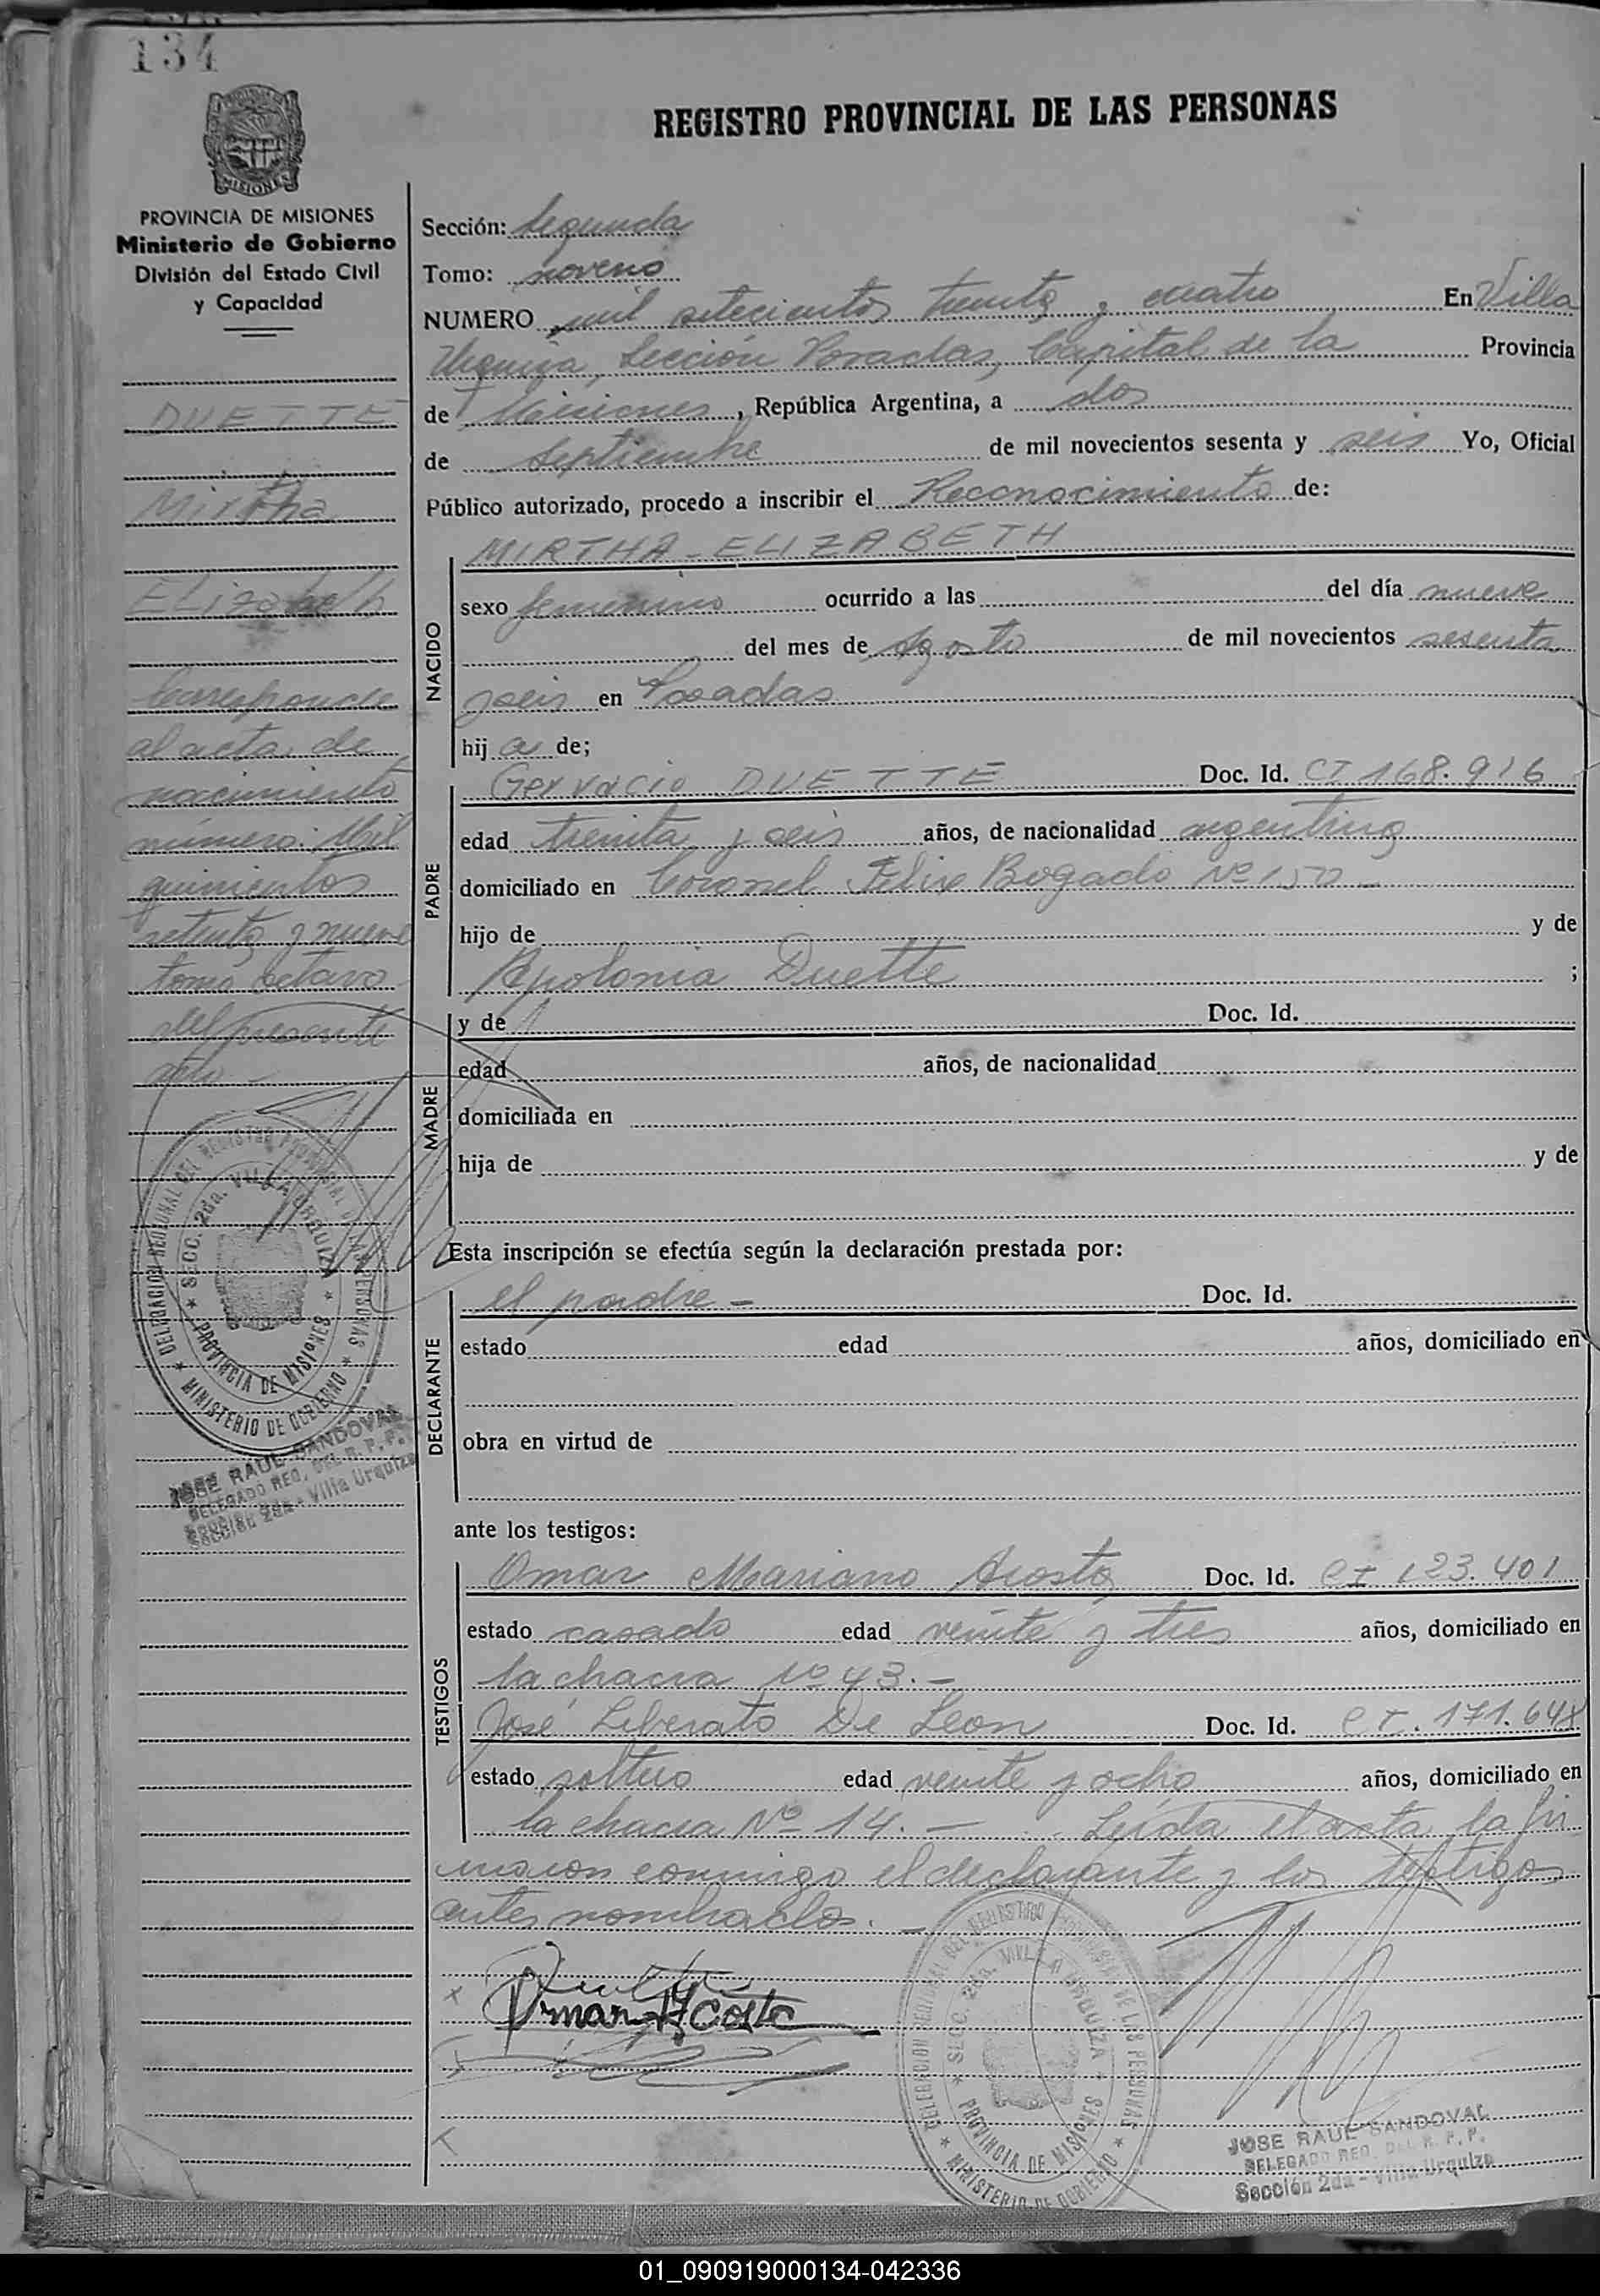 134
REGISTRO PROVINCIAL DE LAS PERSONAS
MISIONES
PROVINCIA DE MISIONES
Ministerio de Gobierno
División del Estado Civil
y Capacidad
DUETTE
Mirtha
Elizabeth
Corresponde
al acta de
nacimiento
número: Mil
quinientos
setenta y nueve
tomo octavo
del presente
año -
DELEGACION REGIONAL DEL REGISTRO PROVINCIAL DE LAS PERSONAS
* SECC. 2da. VILLA URQUIZA *
PROVINCIA DE MISIONES
* MINISTERIO DE GOBIERNO *
JOSE RAUL SANDOVAL
DELEGADO REG. DEL R. P. P.
Sección 2da - Villa Urquiza
Sección: Segunda
Tomo: noveno
NUMERO mil setecientos treinta y cuatro En Villa
Urquiza, Sección Posadas, Capital de la Provincia
de Misiones, República Argentina, a dos
de Septiembre de mil novecientos sesenta y seis Yo, Oficial
Público autorizado, procedo a inscribir el Reconocimiento de:
NACIDO
MIRTHA - ELIZABETH
sexo femenino ocurrido a las del día nueve
del mes de Agosto de mil novecientos sesenta
y seis en Posadas
hij a de;
PADRE
Gervacio DUETTE Doc. Id. CI 168.916
edad treinta y seis años, de nacionalidad argentino
domiciliado en Coronel Felix Bogado Nº 150 -
hijo de y de
Apolonia Duette ;
MADRE
y de Doc. Id.
edad años, de nacionalidad
domiciliada en
hija de y de
Esta inscripción se efectúa según la declaración prestada por:
DECLARANTE
el padre - Doc. Id.
estado edad años, domiciliado en
obra en virtud de
ante los testigos:
TESTIGOS
Omar Mariano Acosta Doc. Id. CI 123.401
estado casado edad veinte y tres años, domiciliado en
la chacra Nº 43. -
José Liberato De Leon Doc. Id. CI. 171.64
estado soltero edad veinte y ocho años, domiciliado en
la chacra Nº 14. - Leída el acta la fir
maron conmigo el declarante y los testigos
antes nombrados. -
Omar A Costa
DELEGACION REGIONAL DEL REGISTRO PROVINCIAL DE LAS PERSONAS
* SECC. 2da. VILLA URQUIZA *
PROVINCIA DE MISIONES
* MINISTERIO DE GOBIERNO *
JOSE RAUL SANDOVAL
DELEGADO REG. DEL R. P. P.
Sección 2da - Villa Urquiza
01_090919000134-042336